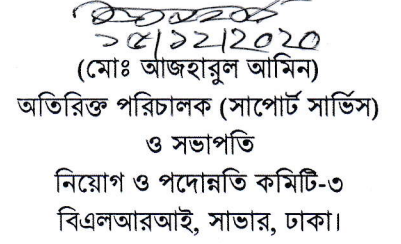 ১৫/১২/২০২০
(মোঃ আজহারুল আমিন)
অতিরিক্ত পরিচালক (সাপোর্ট সার্ভিস)
ও সভাপতি
নিয়োগ ও পদোন্নতি কমিটি-৩
বিএলআরআই, সাভার, ঢাকা।